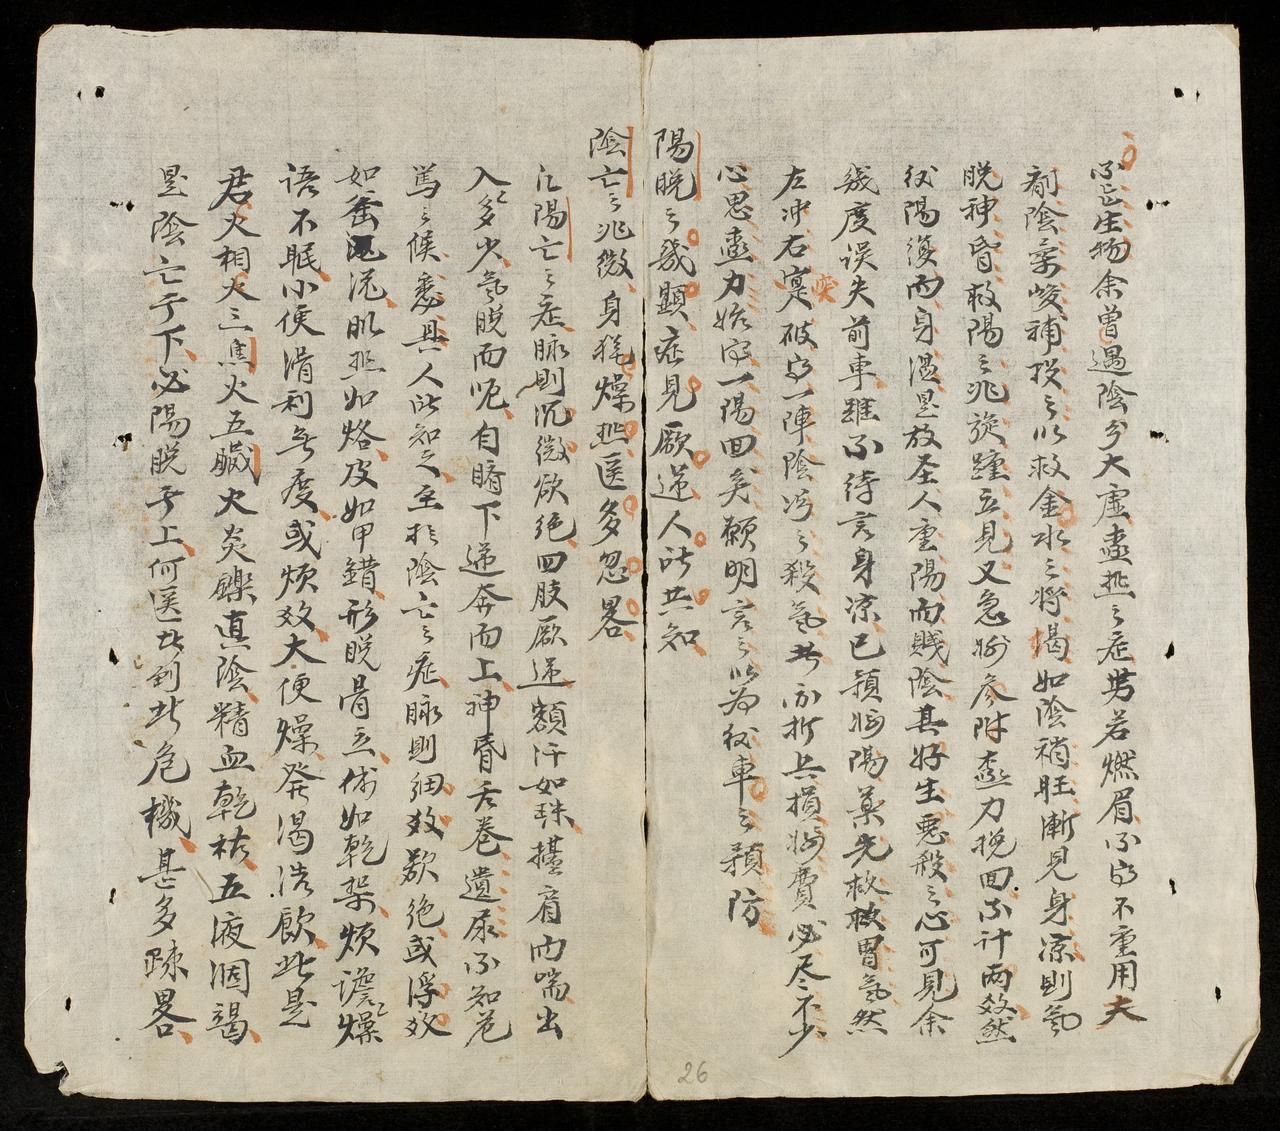 不苦生物余曾遇陰分大虛盡熱之症勢若燃眉不得不重用大
劑陰藥峻補投之以救金水之將竭如陰稍旺漸見身凉則氣
脫神昏救陽之兆旋踵立見又急將參附盡力挽回不計兩數然
後陽復而身溫是故圣人重陽而賤陰其好生惡殺之心可見余
幾度誤失前車雖不待言身凉已預將陽藥先救救胃氣然
左冲右寞突破得一陣陰沴之殺氣其亦折兵損將費必尽不少
心思盡力始得一陽回矣願明言之以為後車之預防
陽脫之幾顯症見厥逆人所共知
陰亡之兆微身耗燥熱医多忽畧
凡陽亡之症脉則沉微欲絕四肢厥逆額汗如珠擡肩而喘出
入多少氣脫而呃自瞎下逆奔而上神昏舌卷遺尿不知危
篤之候悉具人所知之至於陰亡之症脉則細数欲絕或浮数
如蚕流肌熱如烙皮如甲錯形脫骨立体如乾柴煩譫燥
语不眠小便清利無度或煩数大便燥發渴浩飲此是
君火相火三焦火五臟火炎鑠真陰精血乾枯五液涸竭
是陰亡于下必陽脫于上何医此到此危機甚多踈畧
26